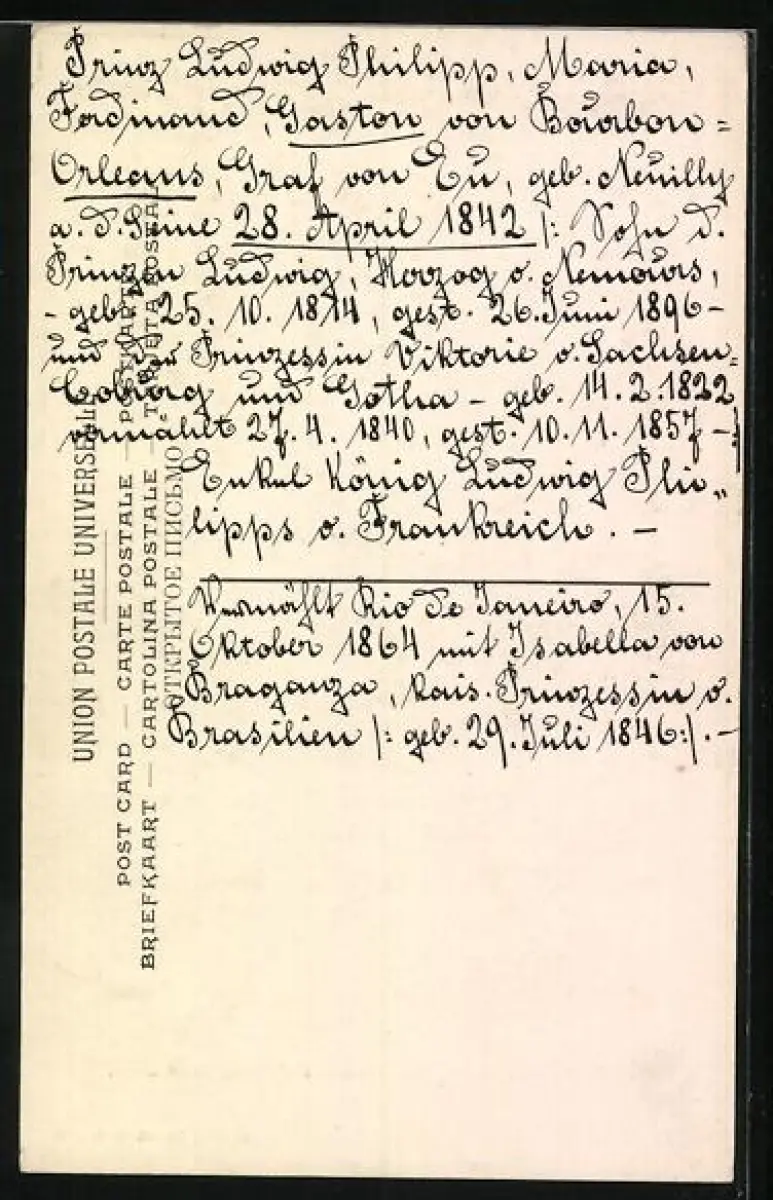 Prinz Ludwig Philipp, Maria,
Ferdinand, Gaston von Bourbon=
Orleans, Graf von Eu, geb. Neuilly
a. d. Seine 28. April 1842 /: Sohn d.
Prinzen Ludwig, Herzog v. Nemours,
- geb. 25. 10. 1814, gest. 26. Juni 1896 -
und der Prinzessin Viktorie v. Sachsen=
Coburg und Gotha - geb. 14. 2. 1822
vermählt 27. 4. 1840, gest. 10. 11. 1857 - :/
Enkel König Ludwig Phi„
lipps v. Frankreich. -
Vermählt Rio de Janeiro, 15.
Oktober 1864 mit Isabella von
Braganza, kais. Prinzessin v.
Brasilien /: geb. 29. Juli 1846 :/. -
UNION POSTALE UNIVERSELLE
POST CARD — CARTE POSTALE — POSTKARTE
BRIEFKAART — CARTOLINA POSTALE — TARJETA POSTAL
ОТКРЫТОЕ ПИСЬМО